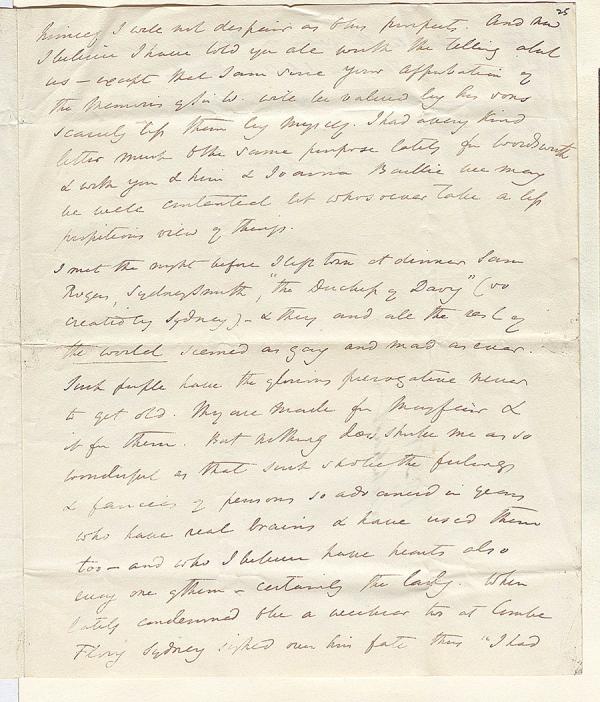 25
himself I will not despair as to his prospects. And now
I believe I have told you all worth the telling about
us – except that I am sure your approbation of
the Memoirs of Sir W. will be valued by his sons
scarcely less than by myself. I had a very kind
letter much to the same purpose lately fm Wordsworth
& with you & him & Joanna Baillie we may
be well contented let whosoever take a less
propitious view of things.
I met the night before I left town at dinner Sam
Rogers, Sydney Smith, "the Duchess of Davy" (so
created by Sydney) – & they and all the rest of
the world seemed as gay and mad as ever.
Such people have the glorious prerogative never
to get old. They are made for Mayfair &
it for them. But nothing does strike me as so
wonderful as that such should be the feelings
& fancies of persons so advanced in years
who have real brains & have used them
too – and who I believe have hearts also
every one of them – certainly the lady. When
lately condemned to be a week or two at Combe
Florey Sydney sighed over his fate thus "I had